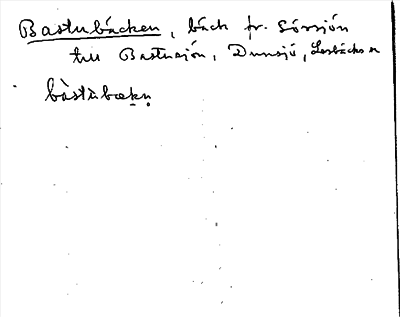 Bastubäcken, bäck fr. Sörsjön
till Bastusjön, Dunsjö, Losbäcks n
bàstubækṇ